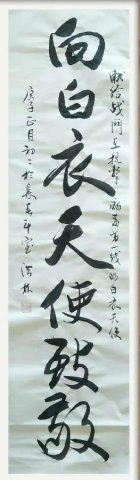 献给战斗在抗击病毒第一线的白衣天使
向白衣天使致敬
庚子正月初二于长春斗室洪林